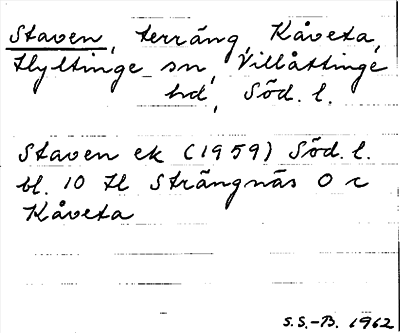 Staven, terräng, Kåveta,
Hyltinge sn, Villåttinge
hd, Söd. l.
Staven ek (1959) Söd. l.
bl. 10 H Strängnäs O c
Kåveta
S.S.-B. 1962